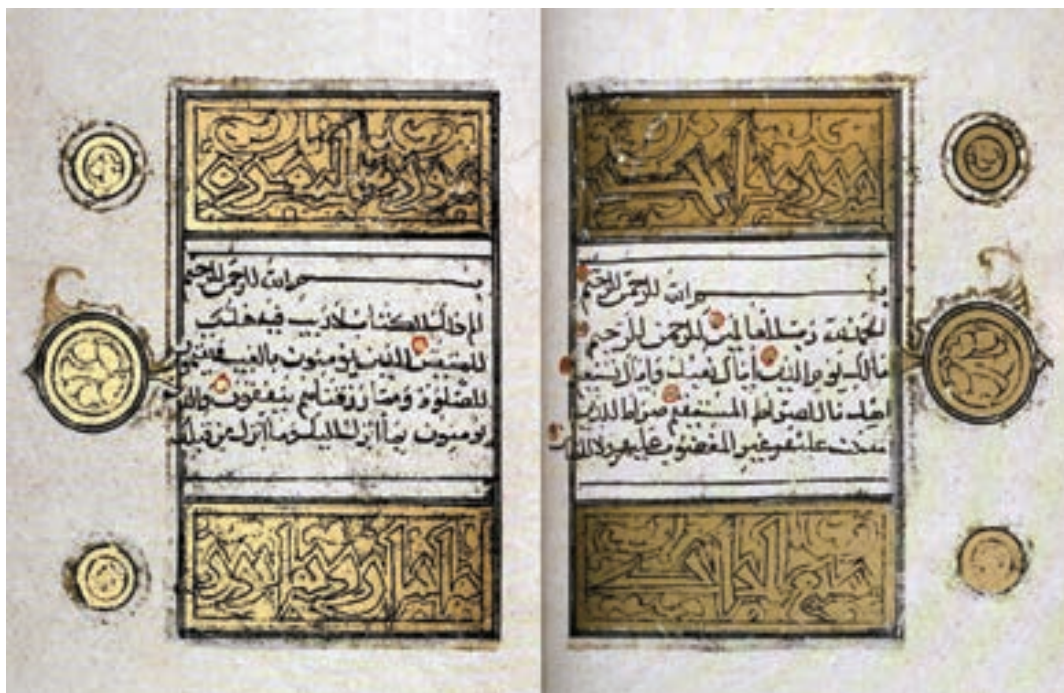 بسم الله الرحمن الرحيم
الحمد لله رب العالمين الرحمن الرحيم
مالك يوم الدين اياك نعبد واياك نستعين
اهدنا الصراط المستقيم صراط الذين
انعمت عليهم غير المغضوب عليهم ولا الضالين
سورة البقرة
بسم الله الرحمن الرحيم
الم ذلك الكتاب لا ريب فيه هدى
للمتقين الذين يؤمنون بالغيب ويقيمون
الصلوة ومما رزقناهم ينفقون والذين
يؤمنون بما أنزل اليك وما أنزل من قبلك